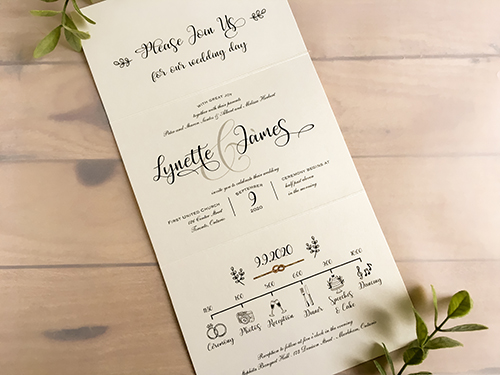 Please Join Us
for our wedding day
WITH GREAT JOY
together with their parents
Lynette & James
invite you to celebrate their wedding
FIRST UNITED CHURCH
Center Street
Toronto, Ontario
SEPTEMBER
9
2020
CEREMONY BEGINS AT
half past eleven
in the morning
9.9.2020
Ceremony
Photos
Reception
Dinner
Speeches
& Cake
Dancing
Reception to follow at five o'clock in the evening
Banquet Hall Street, Markham, Ontario